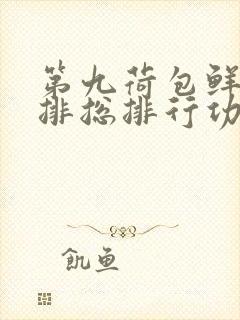 第九荷包鲜
排捴排行功
飢鱼